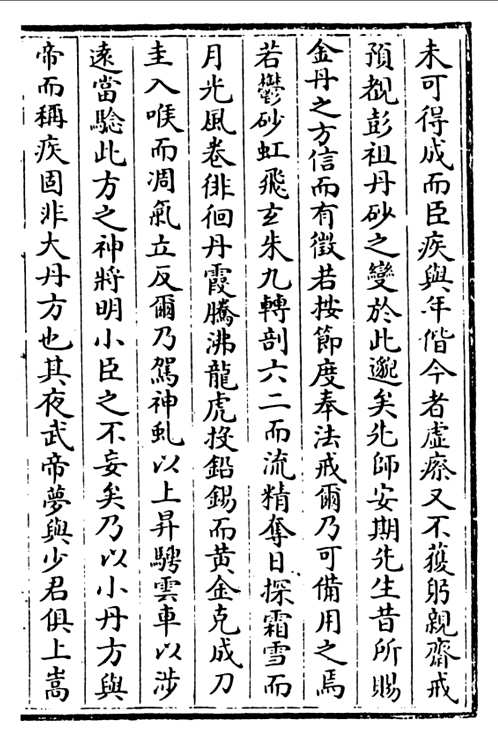 未可得成而臣疾與年偕今者虛瘵又不獲躬親齋戒
預覩彭祖丹砂之變於此邈矣先師安期先生昔所賜
金丹之方信而有徵若按節度奉法戒爾乃可備用之焉
若鬱砂虹飛玄朱九轉剖六二而流精奪日探霜雪而
月光風卷徘徊丹霞騰沸龍虎投鉛錫而黄金克成刀
圭入喉而凋氣立反爾乃駕神虬以上昇騁雲車以涉
遠當騐此方之神將明小臣之不妄矣乃以小丹方與
帝而稱疾固非大丹方也其夜武帝夢與少君俱上嵩